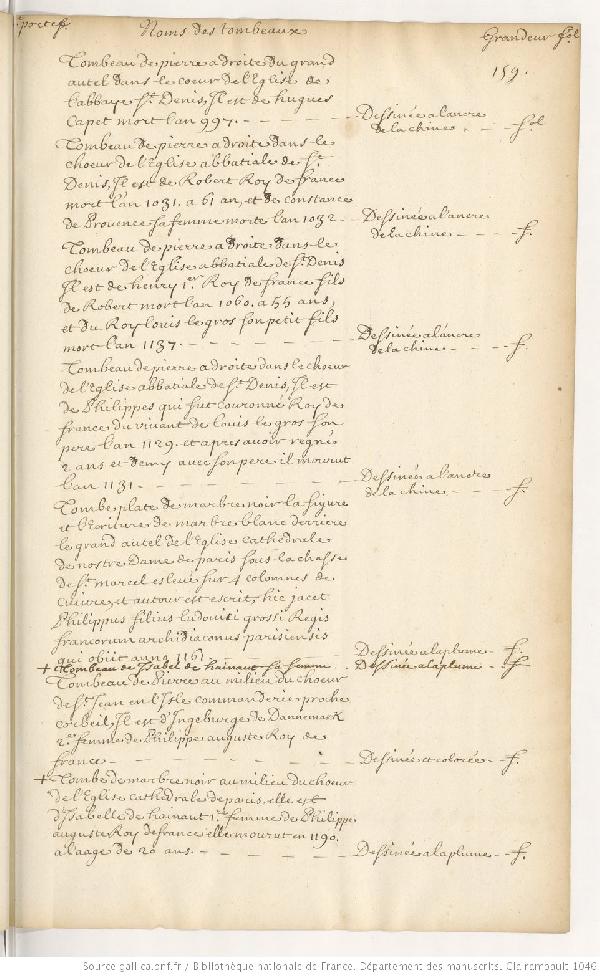 portef. Noms des tombeaux Grandeur fol
159.
Tombeau de pierre a droite du grand
autel dans le cœur de l'Eglise de
l'abbaye St. Denis, Il est de hugues
Capet mort l'an 997. Dessinée a l'ancre
de la chine. fol
Tombeau de pierre a droite dans le
choeur de l'Eglise abbatiale de St.
Denis, Il est de Robert Roy de france
mort l'an 1031. a 61 an, et de constance
de Provence sa femme morte l'an 1032 Dessinée a l'ancre
de la chine f.
Tombeau de pierre a droite dans le
choeur de l'Eglise abbatiale de St. Denis
Il est de henry 1er Roy de france fils
de Robert mort l'an 1060. a 55 ans,
et du Roy Louis le gros son petit fils
mort l'an 1137. Dessinée a l'ancre
de la chine f.
Tombeau de pierre a droite dans le choeur
de l'Eglise abbatiale de St. Denis, Il est
de Philippes qui fut couronné Roy de
france du vivant de Louis le gros son
pere l'an 1129. et apres avoir regné
2 ans et demy avec son pere il mourut
l'an 1131. Dessinée a l'ancre
de la chine f.
Tombe plate de marbre noir la figure
et l'ecriture de marbre blanc derriere
le grand autel de l'Eglise cathedrale
de nostre Dame de paris sous la chasse
de St. marcel eslevé sur 4 colomnes de
cuivre, et autour est escrit, hic jacet
Philippus filius Ludovici grossi Regis
francorum archidiaconus parisiensis
qui obiit anno 1161. Dessinée a la plume f.
+ Tombeau de Isabel de hainaut sa femme. Dessinée a la plume f
Tombeau de Pierre au milieu du choeur
de St. Jean en l'Isle commanderie proche
Corbeil, Il est d'Ingeburge de Dannemark
2e. femme de Philippe auguste Roy de
france Dessinée et colorée f.
+ Tombe de marbre noir au milieu du choeur
de l'Eglise cathedrale de paris, elle est
d'Isabelle de hainaut 1re. femme de Philippe
auguste Roy de france elle mourut en 1190.
a l'aage de 20 ans. Dessinée a la plume f.
Source gallica.bnf.fr / Bibliothèque nationale de France. Département des manuscrits. Clairambault 1046